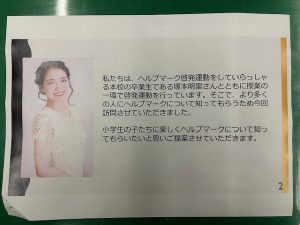 私たちは、ヘルプマーク啓発運動をしていらっしゃ
る本校の卒業生である塚本明里さんとともに授業の
一環で啓発運動を行っています。そこで、より多く
の人にヘルプマークについて知ってもらうため今回
訪問させていただきました。
小学生の子たちに楽しくヘルプマークについて知っ
てもらいたいと思いご提案させていただきます。
2